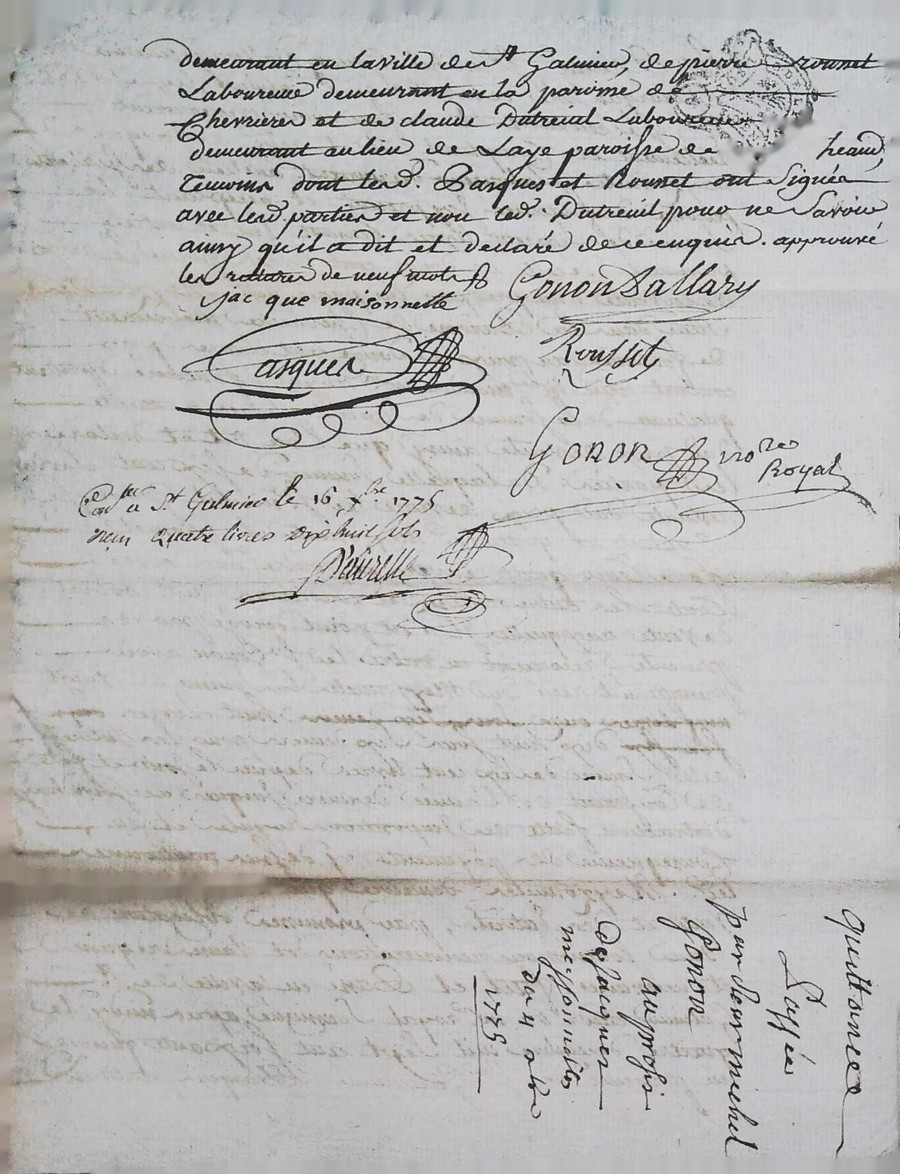 demeurant en la ville de St Galmier, de pierre Rousset
Laboureur demeurant en la paroisse de
Chevrieres et de claude Dutreuil Laboureur
demeurant au lieu de Laye paroisse de heand,
Temoins dont lesd. Pasques et Rousset ont Signés
avec lesd. parties et non led. Dutreuil pour ne Savoir
ainsy qu'il a dit et declaré de ce enquis. approuvé
les ratures de neuf mots
jac que maisonnette Gonon Dallary
asques Rousset
Gonon nore
Royal
a St Galmier le 16 xbre 1775
quatre livres dix huit sols
quittance
passée
par sieur michel
Gonon
au profit
de jaques
messonnettes
Du 4
1775